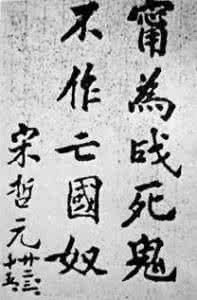 甯為战死鬼
不作亡國奴
宋哲元